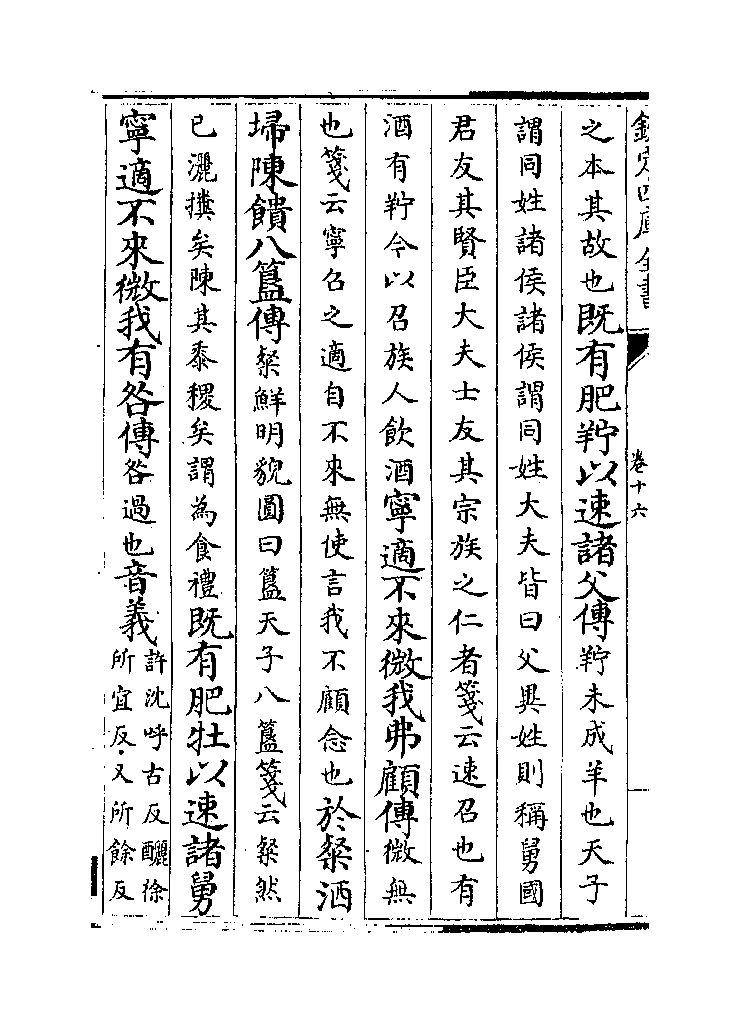 欽定四庫全書
卷十六
之本其故也既有肥羜以速諸父傳羜未成羊也天子
謂同姓諸侯諸侯謂同姓大夫皆曰父異姓則稱舅國
君友其賢臣大夫士友其宗族之仁者箋云速召也有
酒有羜今以召族人飲酒寧適不來微我弗顧傳微無
也箋云寧召之適自不來無使言我不顧念也於粲洒
埽陳饋八簋傳粲鮮明貌圓曰簋天子八簋箋云粲然
已灑㩳矣陳其黍稷矣謂為食禮既有肥牡以速諸舅
寧適不來微我有咎傳咎過也音義許沈呼古反釃徐
所宜反又所餘反